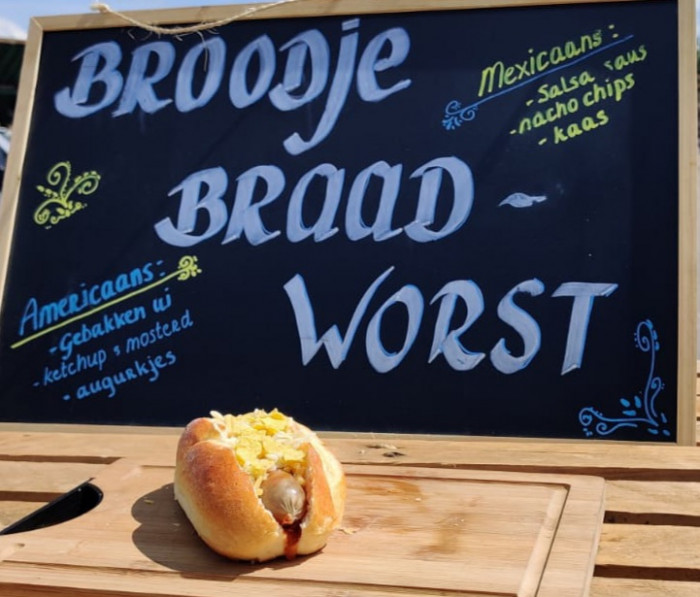 BROODje
BRAAD-
WORST
Mexicaans:
- Salsa saus
- nacho chips
- kaas
Americaans:
- Gebakken ui
- ketchup & mosterd
- augurkjes